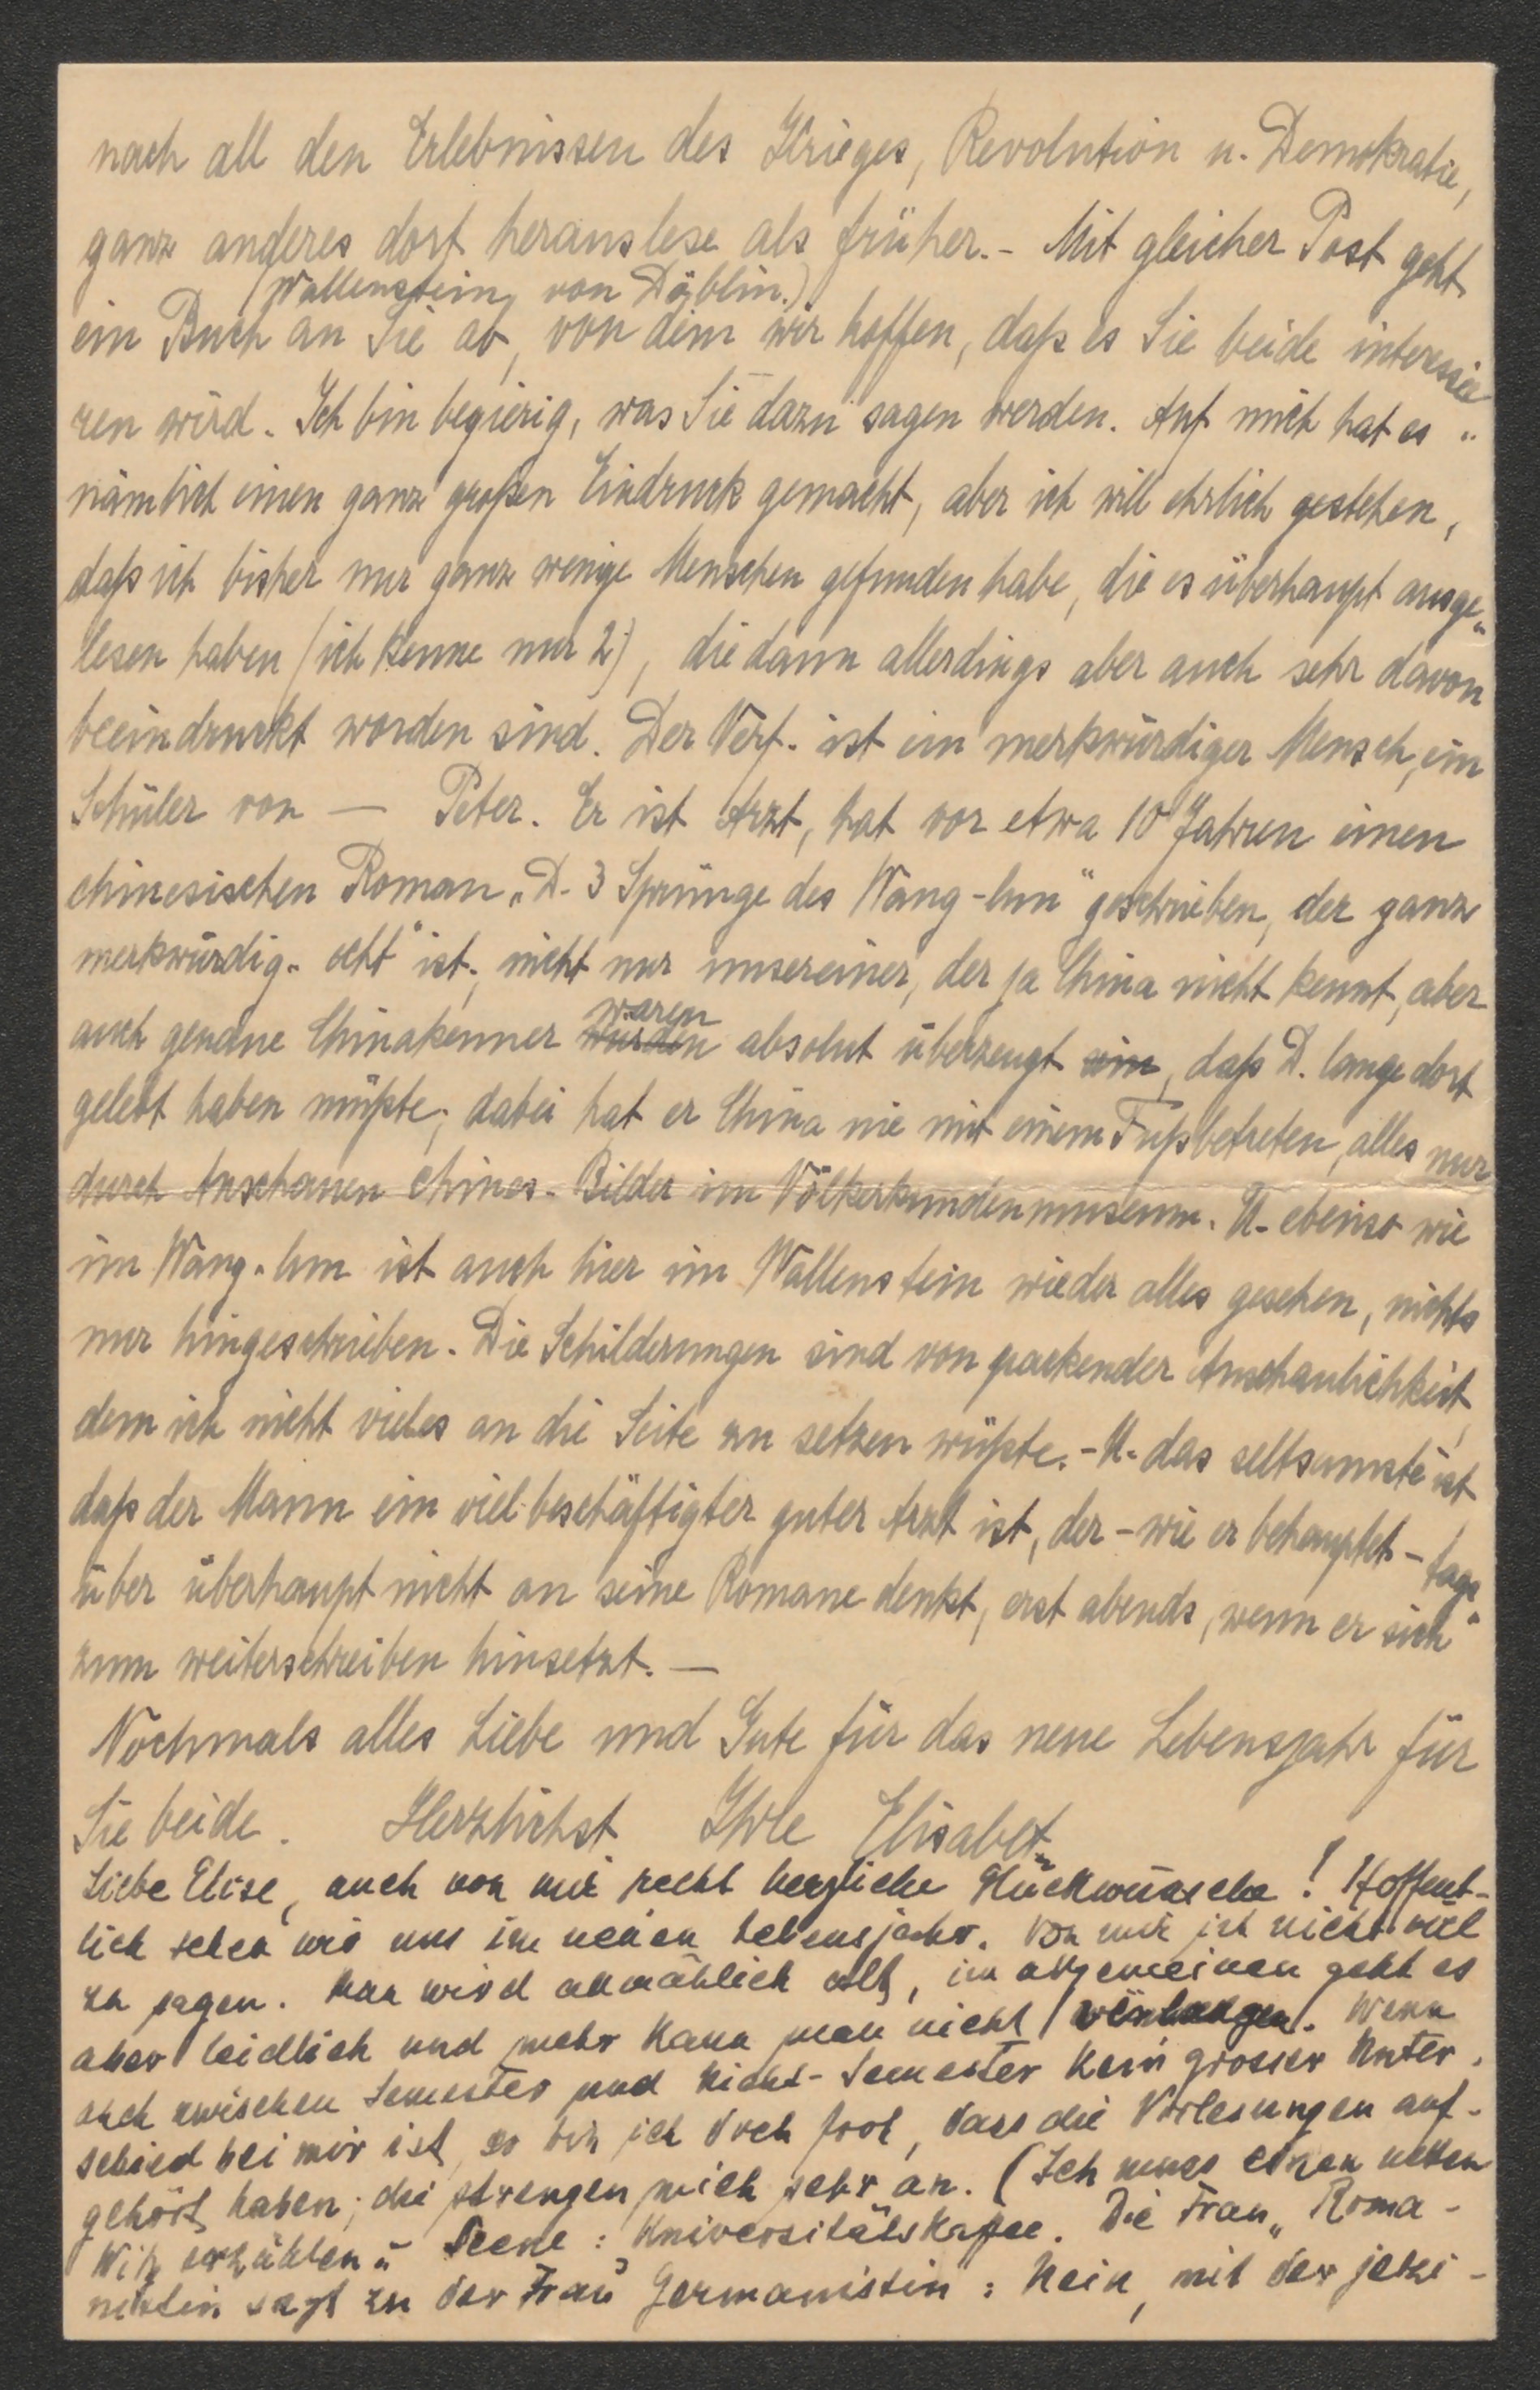 nach all den Erlebnissen des Krieges, Revolution u. Demokratie,
ganz anderes dort herauslese als früher. - Mit gleicher Post geht
(Wallenstein von Döblin.)
ein Buch an Sie ab, von dem wir hoffen, daß es Sie beide interessie
ren wird. Ich bin begierig, was Sie dazu sagen werden. Auf mich hat es "
nämlich einen ganz großen Eindruck gemacht, aber ich will ehrlich gestehen,
daß ich bisher nur ganz wenige Menschen gefunden habe, die es überhaupt ausge„
lesen haben (ich kenne nur 2), die dann allerdings aber auch sehr davon
beeindruckt worden sind. Der Verf. ist ein merkwürdiger Mensch, ein
Schüler von — Peter. Er ist Arzt, hat vor etwa 10 Jahren einen
chinesischen Roman „D. 3 Sprünge des Wang-lun" geschrieben, der ganz
merkwürdig „echt" ist; nicht nur unsereiner, der ja China nicht kennt, aber
waren
auch genaue Chinakenner wurden absolut überzeugt sein, daß D. lange dort
gelebt haben müßte; dabei hat er China nie mit einem Fuß betreten, alles nur
durch Anschauen chines. Bilder im Völkerkundenmuseum. U. ebenso wie
im Wang-lun ist auch hier im Wallenstein wieder alles gesehen, nichts
nur hingeschrieben. Die Schilderungen sind von packender Anschaulichkeit,
dem ich nicht vieles an die Seite zu setzen wüßte. - U. das seltsamste ist
daß der Mann ein viel beschäftigter guter Arzt ist, der - wie er behauptet - tags„
über überhaupt nicht an seine Romane denkt, erst abends, wenn er sich
zum weiterschreiben hinsetzt. —
Nochmals alles Liebe und Gute für das neue Lebensjahr für
Sie beide. Herzlichst Ihre Elisabet
Liebe Elise, auch von mir recht herzliche Glückwünsche! Hoffent-
lich sehen wir uns im neuen Lebensjahr. Von mir ist nicht viel
zu sagen. Man wird allmählich alt, im allgemeinen geht es
aber leidlich und mehr kann man nicht verlangen. Wenn
auch zwischen Semester und Nicht-Semester kein grosser Unter-
schied bei mir ist, so bin ich doch froh, dass die Vorlesungen auf-
gehört haben; die strengen mich sehr an. (Ich muss einen netten
Witz erzählen: Scene: Universitätskaffee. Die Frau „Roma-
nistin sagt zu der Frau Germanistin: Nein, mit der jetzi-